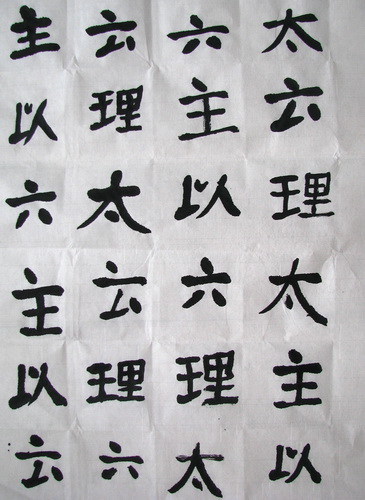 主云六太
以理主云
六太以理
主云六太
以理理主
云六太以